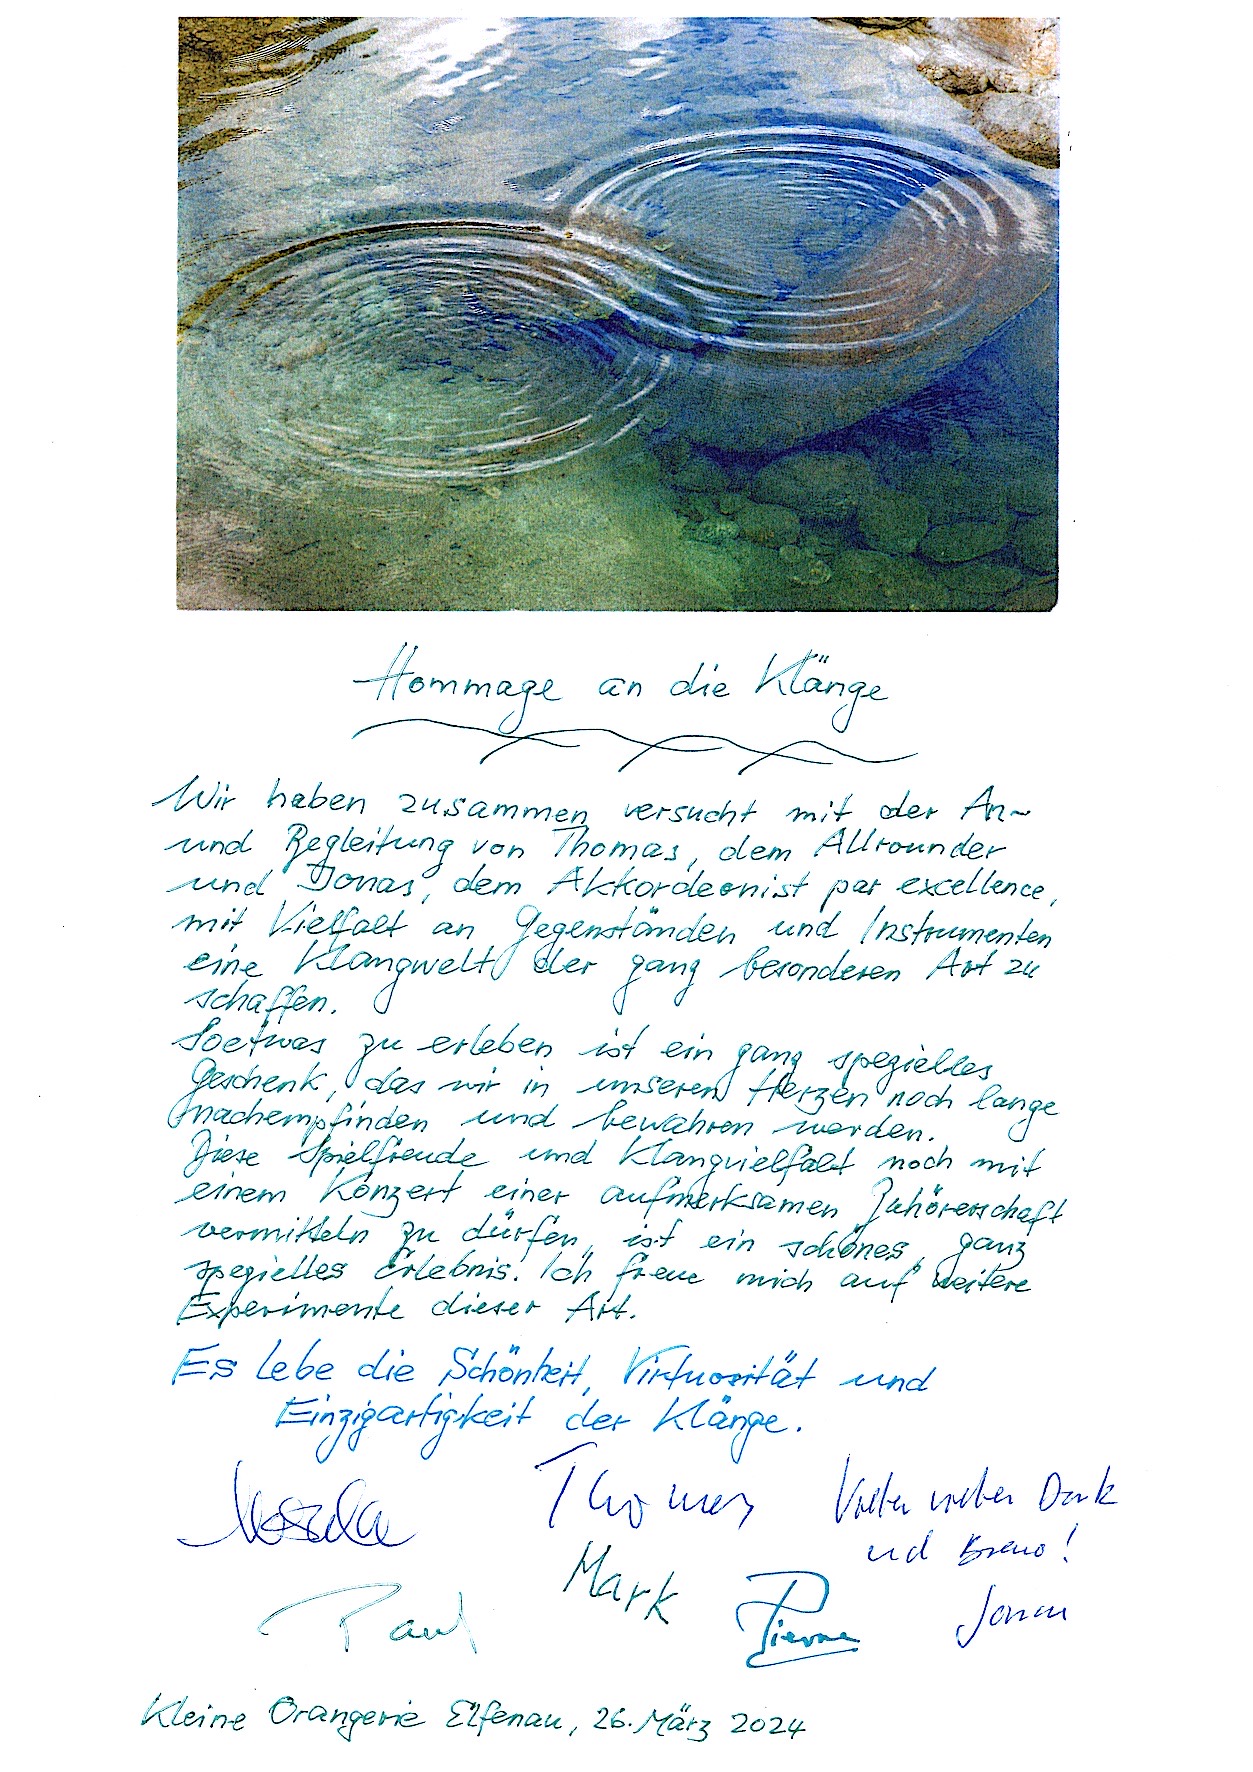 Hommage an die Klänge
Wir haben zusammen versucht mit der An-
und Begleitung von Thomas, dem Allrounder
und Jonas, dem Akkordeonist par excellence,
mit Vielfalt an Gegenständen und Instrumenten
eine Klangwelt der ganz besonderen Art zu
schaffen.
Soetwas zu erleben ist ein ganz spezielles
Geschenk, das wir in unseren Herzen noch lange
nachempfinden und bewahren werden.
Diese Spielfreude und Klangvielfalt noch mit
einem Konzert einer aufmerksamen Zuhörerschaft
vermitteln zu dürfen, ist ein schönes, ganz
spezielles Erlebnis. Ich freue mich auf weitere
Experimente dieser Art.
Es lebe die Schönheit, Virtuosität und
Einzigartigkeit der Klänge.
Ursula
Thomas
Vielen vielen Dank
und Bravo!
Jonas
Mark
Pierre
Paul
Kleine Orangerie Elfenau, 26. März 2024